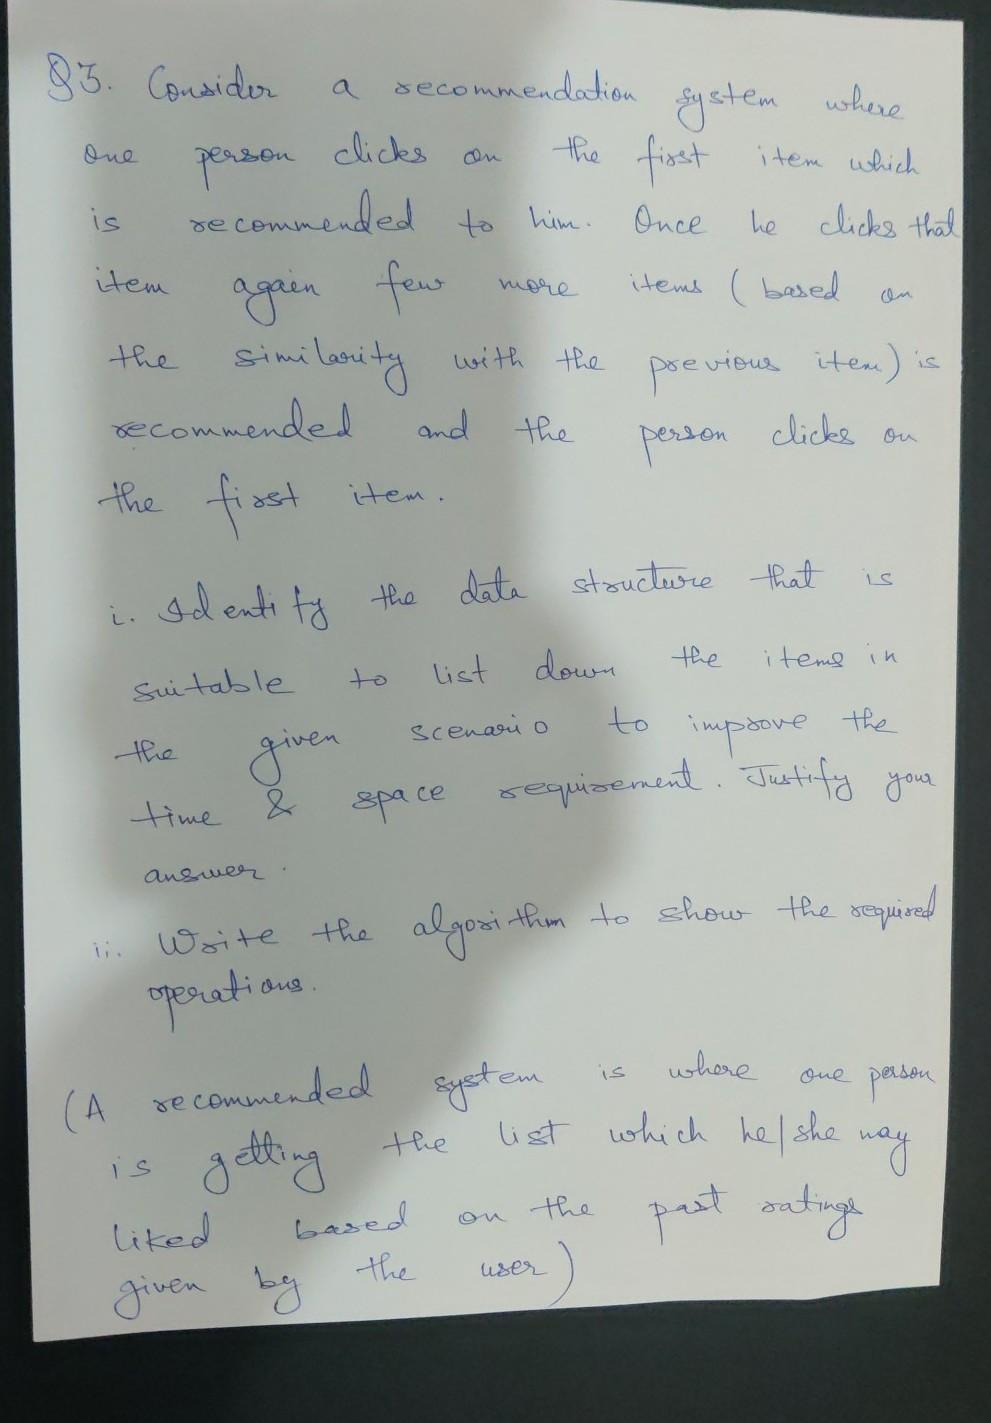 Q3. Consider a recommendation system where
one person clicks on the first item which
is recommended to him. Once he clicks that
item again few more items ( based on
the similarity with the previous item) is
recommended and the person clicks on
the first item.
i. Identify the data structure that is
suitable to list down the items in
the given scenario to improve the
time & space requirement. Justify your
answer.
ii. Write the algorithm to show the required
operations.
(A recommended system is where one person
is getting the list which he/she may
liked based on the past ratings
given by the user)